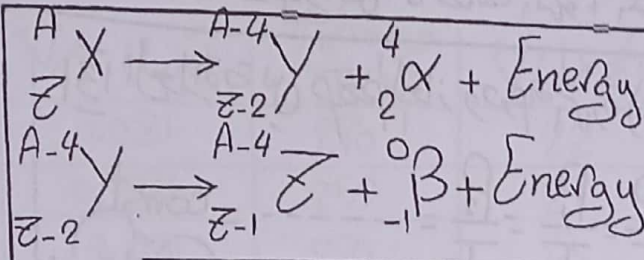 ^{A}_{Z}X → ^{A-4}_{Z-2}Y + ^{4}_{2}α + Energy
^{A-4}_{Z-2}Y → ^{A-4}_{Z-1}Z + ^{0}_{-1}β + Energy